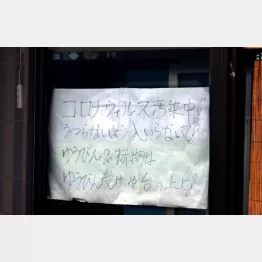 コロナウィルス汚染中!
うつらないよう入いらないで!!
ゆうびん&荷物は
ゆうびん受けや台の上に!!